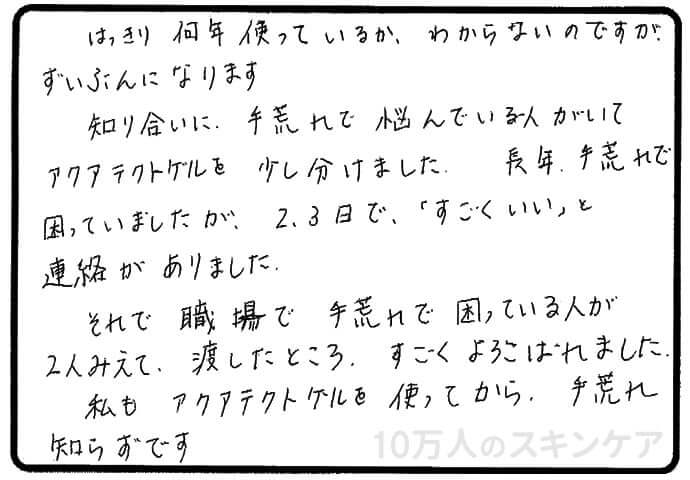 はっきり 何年 使っているか、わからないのですが、
ずいぶんになります
知り合いに、手荒れで 悩んでいる人がいて
アクアテクトゲルを 少し分けました。 長年、手荒れで
困っていましたが、2、3日で、「すごくいい」と
連絡が ありました。
それで 職場で 手荒れで 困っている人が
2人みえて、渡したところ、すごく よろこばれました。
私も アクアテクトゲルを 使ってから、手荒れ
知らずです
10万人のスキンケア